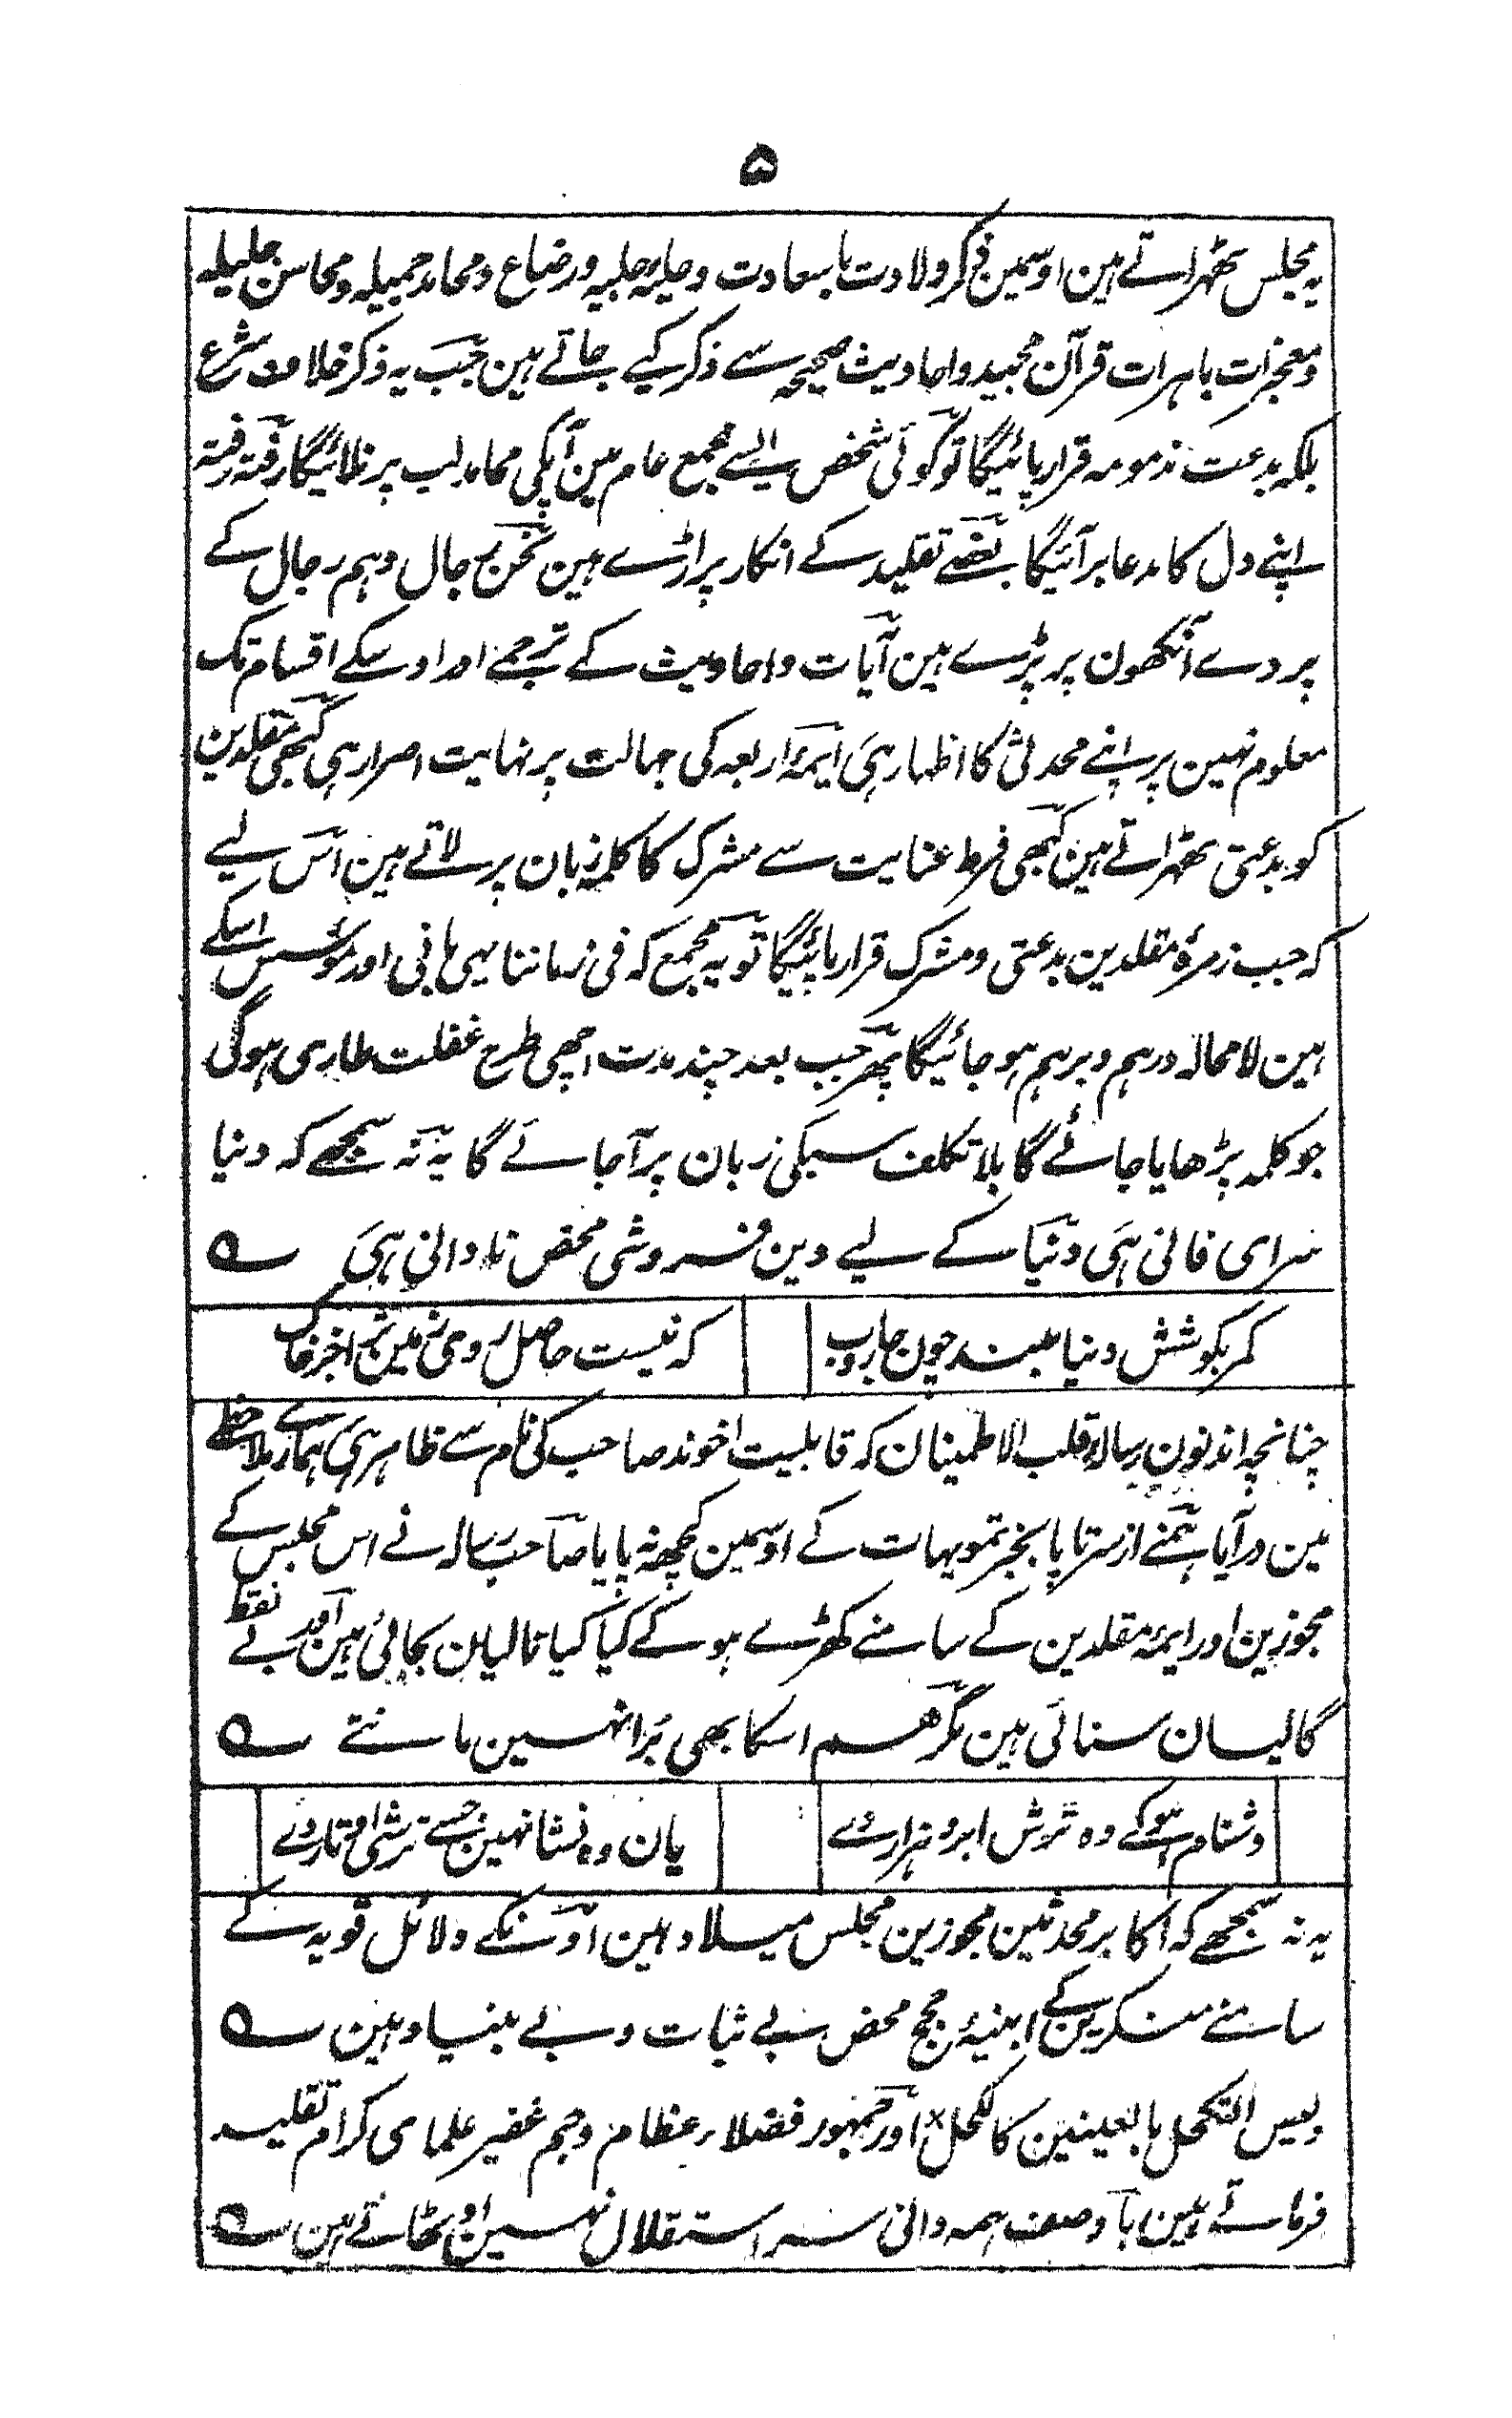 ۵
یہ مجلس ٹھہراتے ہین اوسمین ذکر ولادت با سعادت و حلیۂ جلیہ و رضاع و محامد جمیلہ و محاسن جلیلہ
و معجزات باہرات قرآن مجید و احادیث صحیحہ سے ذکر کیے جاتے ہین جب یہ ذکر خلاف شرع
بلکہ بدعت مذمومہ قرار پائیگا تو کوئی شخص ایسے مجمع عام مین آپکی محامد لب پر نلائیگا رفتہ رفتہ
اپنے دل کا مدعا بر آئیگا بعضے تقلید کے انکار پر اڑے ہین نحن رجال و ہم رجال کے
پردے آنکھون پر پڑے ہین آیات و احادیث کے ترجمے اور اوسکے اقسام تک
معلوم نہین پر اپنے محدثی کا اظہار ہی ایمۂ اربعہ کی جہالت پر نہایت اصرار ہی کبھی مقلدین
کو بدعتی ٹھہراتے ہین کبھی فرط عنایت سے مشرک کا کلمہ زبان پر لاتے ہین اس لیے
کہ جب زمرۂ مقلدین بدعتی و مشرک قرار پائیگا تو یہ مجمع کہ فی زماننا یہی بانی اور مؤسس اسکے
ہین لا محالہ درہم و برہم ہو جائیگا پھر جب بعد چند مدت اچھی طرح غفلت طاری ہوگی
جو کلمہ پڑھایا جائے گا بلا تکلف سبکی زبان پر آجائے گا یہ نہ سمجھے کہ دنیا
سرای فانی ہی دنیا کے لیے دین فروشی محض نادانی ہی ؎
کمر بکوشش دنیا مبند چون جاروب
کہ نیست حاصل روی زمین بجز خاک
چنانچہ اندنون رسالہ قلب الاطمینان کہ قابلیت اخوند صاحب کی نام سے ظاہر ہی ہمارے ملاحظے
مین در آیا ہمنے از سر تا پا بجز تمویہات کے اوسمین کچھ نہ پایا صاحب رسالہ نے اس مجلس کے
مجوزین اور ایمہ مقلدین کے سامنے کھڑے ہو کے کیا کیا تالیان بجائی ہین اور بے نقط
گالیان سنائی ہین مگر ہم اسکا بھی برا نہین مانتے ؎
دشنام ہو کے وہ ترش ابرو ہزار دے
یان وہ نشا نہین جسے ترشی اوتار دے
یہ نہ سمجھے کہ اکابر محدثین مجوزین مجلس میلاد ہین اونکے دلائل قویہ کے
سامنے منکرین کے ابنیۂ حجج محض بے ثبات و بے بنیاد ہین ؎
و لیس التکحل بالعینین کالکحل × اور جمہور فضلاء عظام و جم غفیر علمای کرام تقلید
فرماتے ہین با وصف ہمہ دانی سر استقلال نہین اوٹھاتے ہین ؎